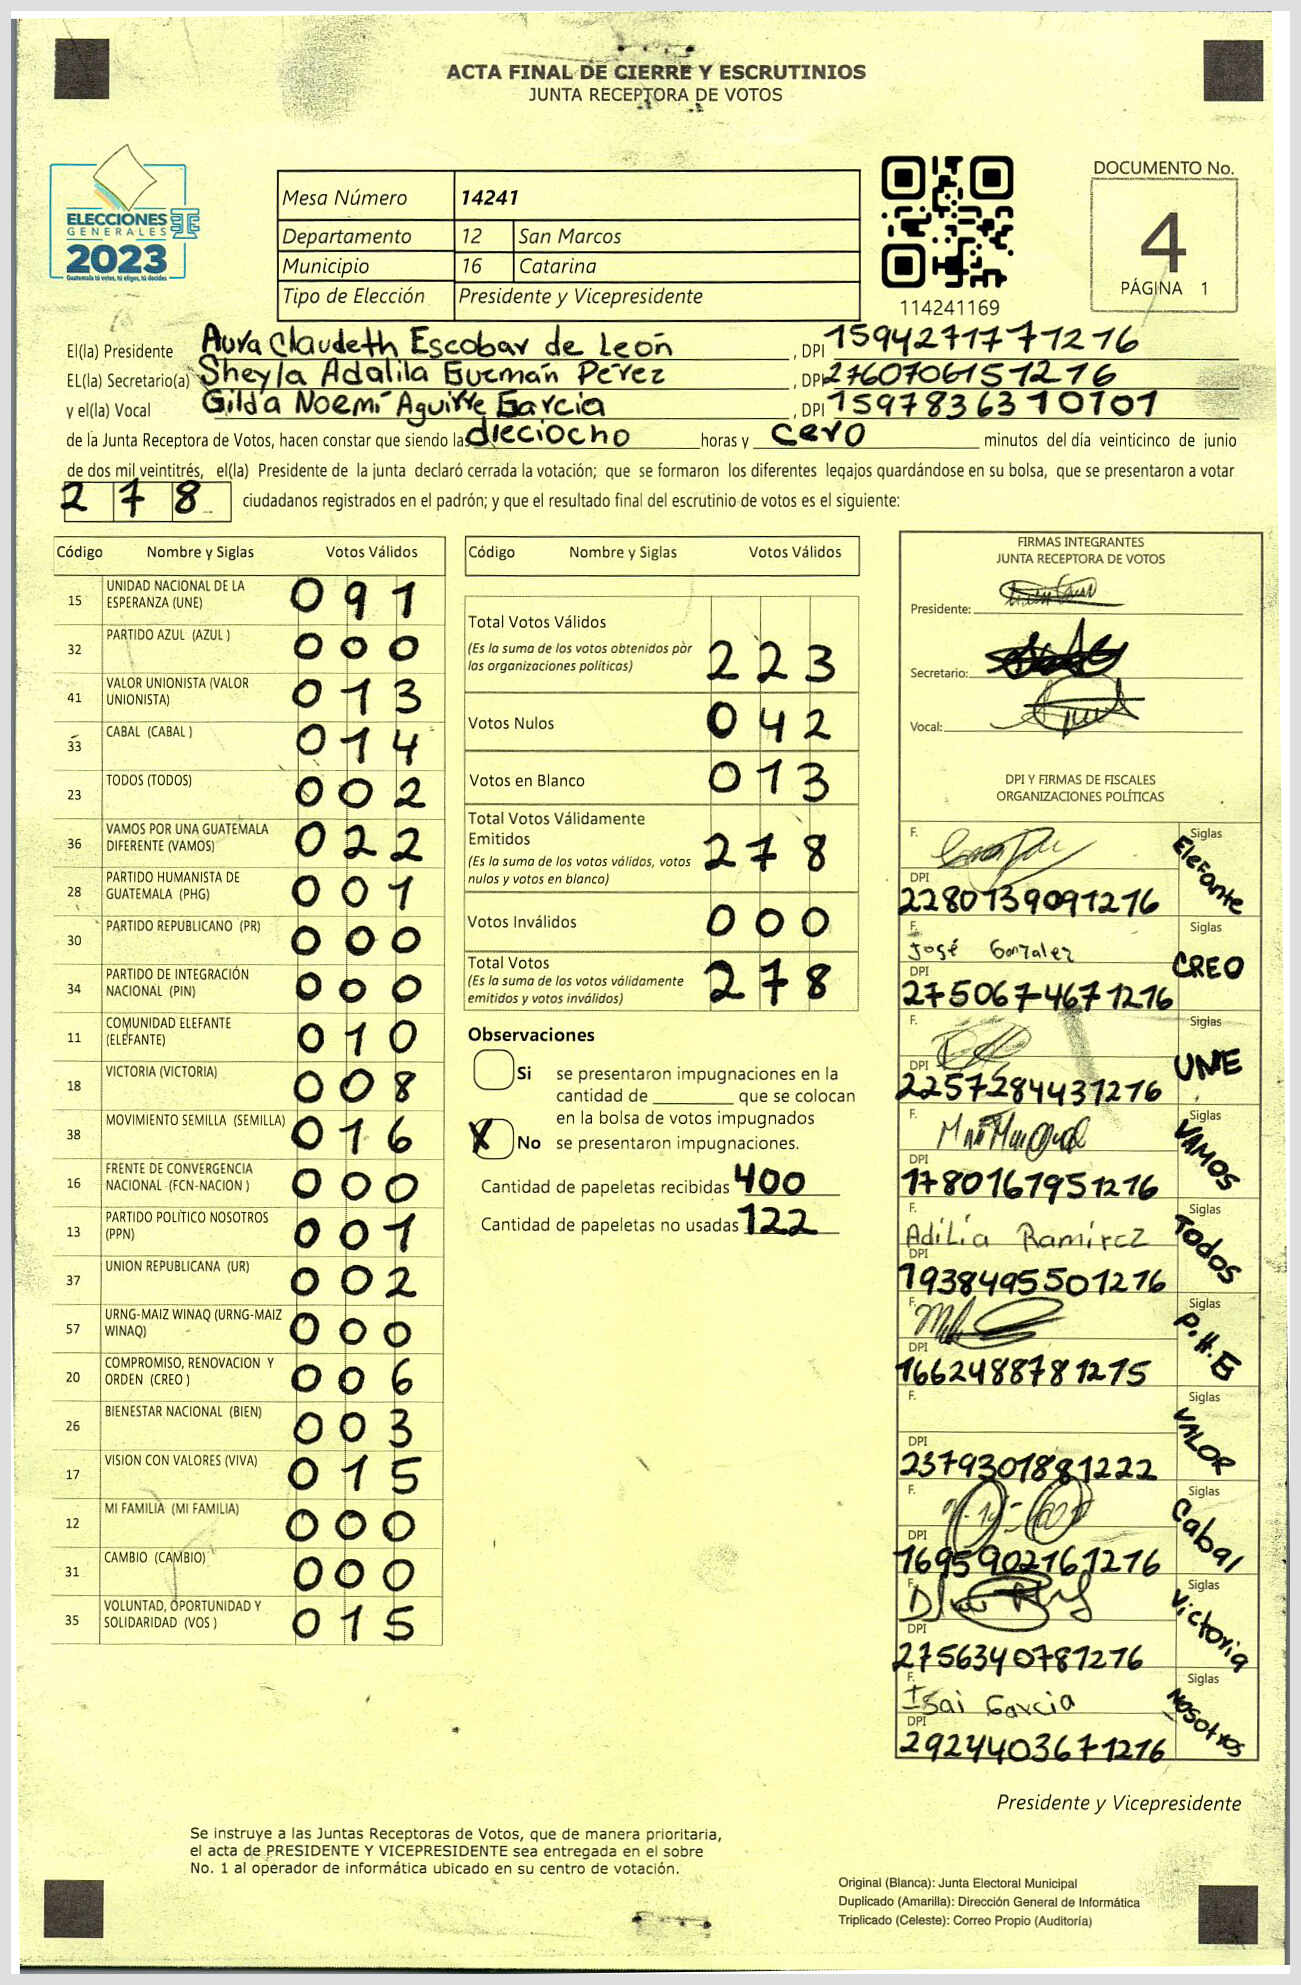 ACTA FINAL DE CIERRE Y ESCRUTINIOS
JUNTA RECEPTORA DE VOTOS
ELECCIONES
GENERALES
2023
Guatemala tú votas, tú eliges, tú decides
Mesa Número 14241
Departamento 12 San Marcos
Municipio 16 Catarina
Tipo de Elección Presidente y Vicepresidente
114241169
DOCUMENTO No.
4
PÁGINA 1
El(la) Presidente Aura Claudeth Escobar de León , DPI 1594271771216
EL(la) Secretario(a) Sheyla Adalila Guzmán Pérez , DPI 2760706151216
y el(la) Vocal Gilda Noemí Aguirre García , DPI 1597836310101
de la Junta Receptora de Votos, hacen constar que siendo las dieciocho horas y cero minutos del día veinticinco de junio
de dos mil veintitrés, el(la) Presidente de la junta declaró cerrada la votación; que se formaron los diferentes legajos guardándose en su bolsa, que se presentaron a votar
278 ciudadanos registrados en el padrón; y que el resultado final del escrutinio de votos es el siguiente:
Código Nombre y Siglas Votos Válidos
15 UNIDAD NACIONAL DE LA ESPERANZA (UNE) 091
32 PARTIDO AZUL (AZUL ) 000
41 VALOR UNIONISTA (VALOR UNIONISTA) 013
33 CABAL (CABAL ) 014
23 TODOS (TODOS) 002
36 VAMOS POR UNA GUATEMALA DIFERENTE (VAMOS) 022
28 PARTIDO HUMANISTA DE GUATEMALA (PHG) 001
30 PARTIDO REPUBLICANO (PR) 000
34 PARTIDO DE INTEGRACIÓN NACIONAL (PIN) 000
11 COMUNIDAD ELEFANTE (ELEFANTE) 010
18 VICTORIA (VICTORIA) 008
38 MOVIMIENTO SEMILLA (SEMILLA) 016
16 FRENTE DE CONVERGENCIA NACIONAL (FCN-NACION ) 000
13 PARTIDO POLÍTICO NOSOTROS (PPN) 001
37 UNION REPUBLICANA (UR) 002
57 URNG-MAIZ WINAQ (URNG-MAIZ WINAQ) 000
20 COMPROMISO, RENOVACION Y ORDEN (CREO ) 006
26 BIENESTAR NACIONAL (BIEN) 003
17 VISION CON VALORES (VIVA) 015
12 MI FAMILIA (MI FAMILIA) 000
31 CAMBIO (CAMBIO) 000
35 VOLUNTAD, OPORTUNIDAD Y SOLIDARIDAD (VOS ) 015
Código Nombre y Siglas Votos Válidos
Total Votos Válidos 223
(Es la suma de los votos obtenidos por
las organizaciones políticas)
Votos Nulos 042
Votos en Blanco 013
Total Votos Válidamente
Emitidos 278
(Es la suma de los votos válidos, votos
nulos y votos en blanco)
Votos Inválidos 000
Total Votos 278
(Es la suma de los votos válidamente
emitidos y votos inválidos)
Observaciones
Si se presentaron impugnaciones en la
cantidad de ________ que se colocan
en la bolsa de votos impugnados
X No se presentaron impugnaciones.
Cantidad de papeletas recibidas 400
Cantidad de papeletas no usadas 122
FIRMAS INTEGRANTES
JUNTA RECEPTORA DE VOTOS
Presidente:
Secretario:
Vocal:
DPI Y FIRMAS DE FISCALES
ORGANIZACIONES POLÍTICAS
F. Siglas Elefante
DPI 2280139091216
F. José Gonzalez Siglas CREO
DPI 2750674671216
F. Siglas UNE
DPI 2257284431216
F. Siglas VAMOS
DPI 1780161951216
F. Adilia Ramírez Siglas Todos
DPI 1938495501216
F. Siglas P.H.G
DPI 1662488781215
F. Siglas VALOR
DPI 2379301881222
F. Siglas Cabal
DPI 1695902161216
F. Siglas Victoria
DPI 2756340781216
F. Isai Garcia Siglas Nosotros
DPI 2924403671216
Presidente y Vicepresidente
Se instruye a las Juntas Receptoras de Votos, que de manera prioritaria,
el acta de PRESIDENTE Y VICEPRESIDENTE sea entregada en el sobre
No. 1 al operador de informática ubicado en su centro de votación.
Original (Blanca): Junta Electoral Municipal
Duplicado (Amarilla): Dirección General de Informática
Triplicado (Celeste): Correo Propio (Auditoría)